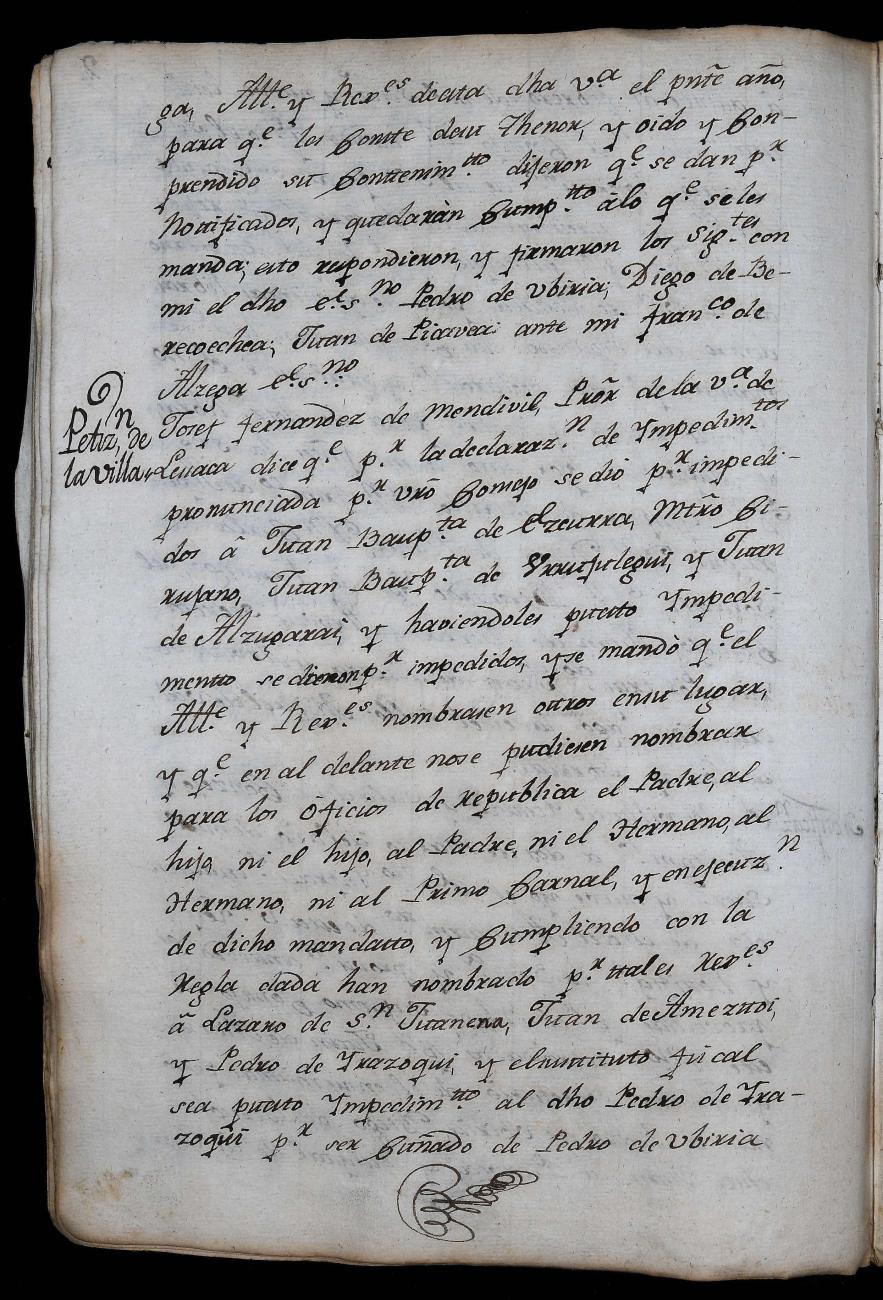 ga, Alle. y Rexes. de esta dha va. el pnte año,
para qe. les Conste de su Thenor, y oido y Con-
prendido su Conttenimtto. dijeron qe. se dan pr.
Nottificados, y quedaràn Cumptto. àlo qe. se les
manda; esto respondieron, y firmaron los sigtes. con
mi el dho esno. Pedro de Vbiria; Diego de Be-
recoechea; Juan de Picavea: ante mi Franco. de
Alzega esno.
Petizn. de
la villa
Josef Fernandez de Mendivil, Pror de la va. de
Lesaca dice qe. pr. la declarazn. de Ympedimtos.
pronunciada pr. vrô Consejo se diò pr. impedi-
dos â Juan Baupta. de Ezcurra, Mtrô Ci-
rujano, Juan Baupta. de Vrrutulegui, y Juan
de Alzugarai, y haviendoles puesto Ympedi-
mentto se dieron pr. impedidos, y se mandò qe. el
Alle. y Rexes. nombrasen ottros en su lugar,
y qe. en al delante no se pudiesen nombrar
para los òficios de republica el Padre, al
hijo, ni el hijo, al Padre, ni el Hermano, al
Hermano, ni al Primo Carnal, y en ejecuzn.
de dicho mandatto, y Cumpliendo con la
Regla dada han nombrado pr. ttales Rexes.
â Lazaro de Sn. Juanena, Juan de Amezttoi,
y Pedro de Yrazoqui, y el susttituto fiscal
sea puesto Ympedimtto. al dho Pedro de Yra-
zoqui pr. ser Cuñado de Pedro de Vbiria